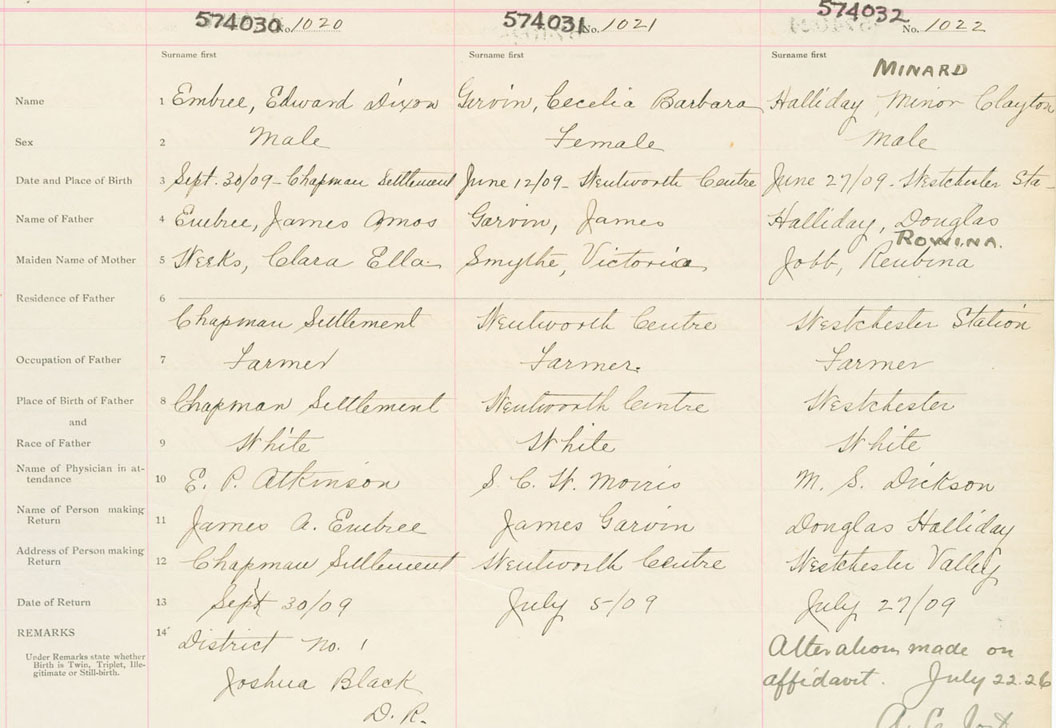 574030 No. 1020 574031 No. 1021 574032 No. 1022
Surname first Surname first Surname first
MINARD
Name 1 Embree, Edward Dixon Girvin, Cecelia Barbara Halliday, Minor Clayton
Sex 2 Male Female Male
Date and Place of Birth 3 Sept. 30/09 - Chapman Settlement June 12/09 - Wentworth Centre June 27/09 - Westchester Sta-
Name of Father 4 Embree, James Amos Garvin, James Halliday, Douglas
ROWINA.
Maiden Name of Mother 5 Weeks, Clara Ella Smythe, Victoria Jobb, Reubina
Residence of Father 6
Chapman Settlement Wentworth Centre Westchester Station
Occupation of Father 7 Farmer Farmer. Farmer
Place of Birth of Father 8 Chapman Settlement Wentworth Centre Westchester
and
Race of Father 9 White White White
Name of Physician in at-
tendance 10 E. P. Atkinson S. C. W. Morris M. S. Dickson
Name of Person making
Return 11 James A. Embree James Garvin Douglas Halliday
Address of Person making
Return 12 Chapman Settlement Wentworth Centre Westchester Valley
Date of Return 13 Sept 30/09 July 5/09 July 27/09
REMARKS 14 District No. 1 Alterations made on
Under Remarks state whether
Birth is Twin, Triplet, Ille-
gitimate or Still-birth.
Joshua Black affidavit. July 22.26
D. R.